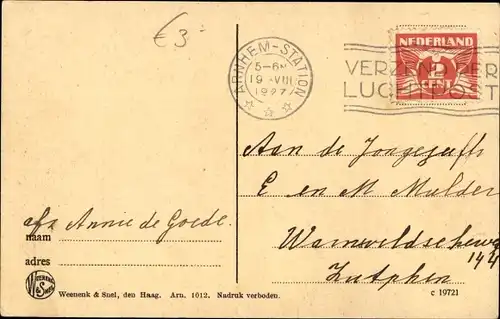 € 3-
ARNHEM-STATION
5-6N
19 VIII
1927
VERZEND PER
LUCHTPOST
NEDERLAND
2
CENT
Aan de Jongejuffr
E en M Mulder
Warnsveldscheweg
144
Zutphen
afz Annie de Goede.
naam
adres
WEENENK & SNEL
Weenenk & Snel, den Haag. Arn. 1012. Nadruk verboden.
c 19721